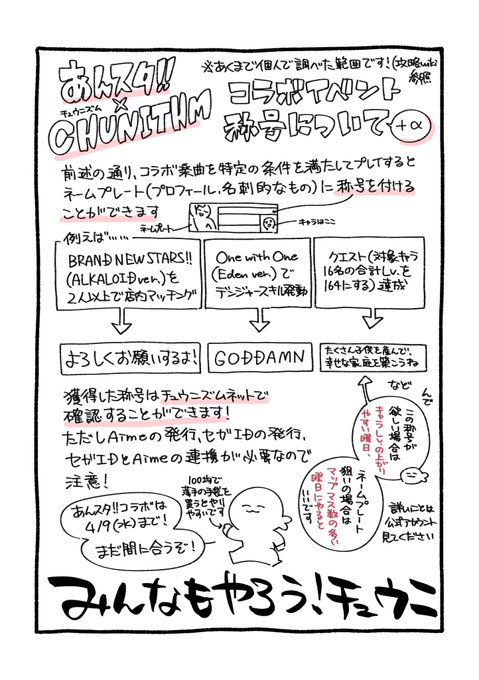 あんスタ!!
×
チュウニズム
CHUNITHM
※あくまで個人で調べた範囲です!(攻略wiki
参照
コラボイベント
称号について
+α
前述の通り、コラボ楽曲を特定の条件を満たしてプレイすると
ネームプレート(プロフィール、名刺的なもの)に称号を付ける
ことができます
ネームプレート
キャラはここ
例えば……
BRAND NEW STARS!!
(ALKALOID ver.)を
2人以上で店内マッチング
One with One
(Eden ver.)で
デンジャースキル発動
クエスト(対象キャラ
16名の合計Lv.を
164にする)達成
よろしくお願いするよ!
GODDAMN
たくさん子供を産んで、
幸せな家庭を築こうね
など
獲得した称号はチュウニズムネットで
確認することができます!
ただしAimeの発行、セガIDの発行、
セガIDとAimeの連携が必要なので
注意!
んで
この称号が
欲しい場合は
キャラLv.の上がり
やすい曜日、
ネームプレート
狙いの場合は
マップマス数の多い
曜日にやると
いいです
100均で
薄手の手袋を
買うとやり
やすいです
あんスタ!!コラボは
4/9(水)まで!
まだ間に合うぞ!
詳しいことは
公式アカウント
見てください
みんなもやろう!チュウニ